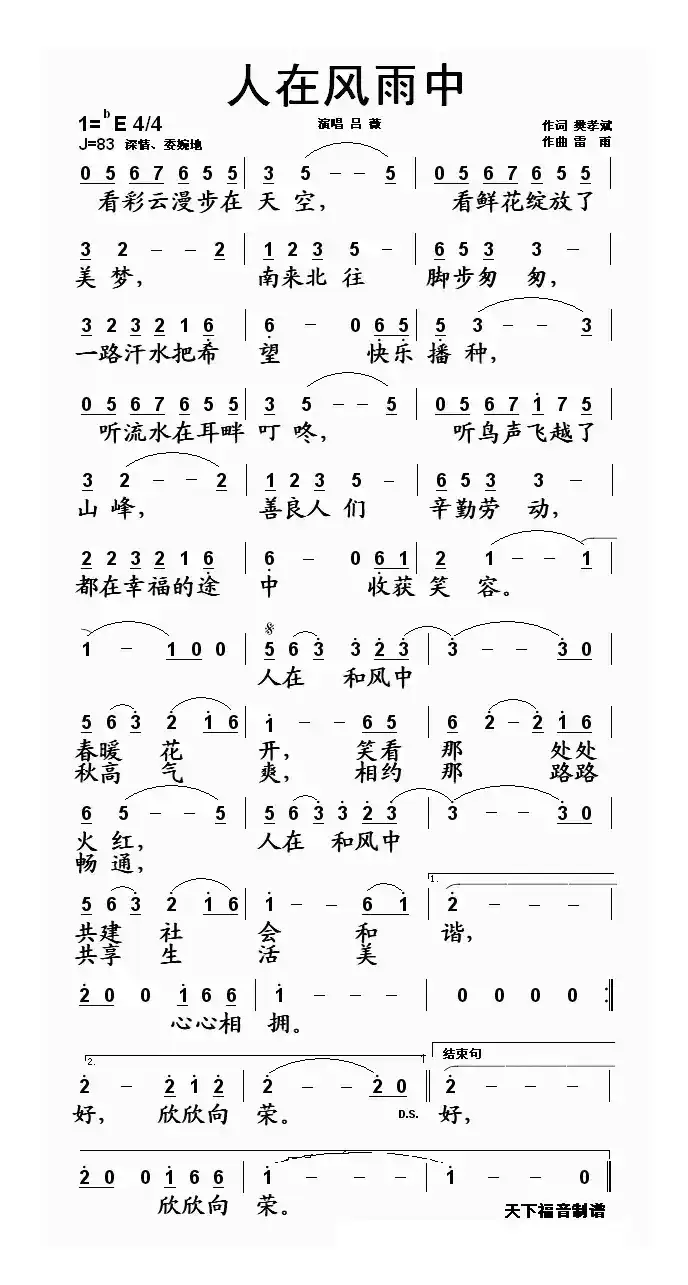 人在风雨中
1=ᵇE 4/4 演唱 吕 薇 作词 樊孝斌
J=83 深情、委婉地 作曲 雷 雨
0 5 6 7 6 5 5 | 3 5 - - 5 | 0 5 6 7 6 5 5 |
看彩云漫步在 天 空， 看鲜花绽放了
3 2 - - 2 | 1 2 3 5 - | 6 5 3 3 - |
美 梦， 南来北 往 脚步匆 匆，
3 2 3 2 1 6 | 6 - 0 6 5 | 5 3 - - 3 |
一路汗水把希 望 快乐 播 种，
0 5 6 7 6 5 5 | 3 5 - - 5 | 0 5 6 7 1 7 5 |
听流水在耳畔 叮 咚， 听鸟声飞越了
3 2 - - 2 | 1 2 3 5 - | 6 5 3 3 - |
山 峰， 善良人 们 辛勤劳 动，
2 2 3 2 1 6 | 6 - 0 6 1 | 2 1 - - 1 |
都在幸福的途 中 收获 笑 容。
1 - 1 0 0 | 5 6 3 3 2 3 | 3 - - 3 0 |
人在 和风中
5 6 3 2 1 6 | 1 - - 6 5 | 6 2 - 2 1 6 |
春暖 花 开， 笑看 那 处处
秋高 气 爽， 相约 那 路路
6 5 - - 5 | 5 6 3 3 2 3 | 3 - - 3 0 |
火 红， 人在 和风中
畅 通，
1.
5 6 3 2 1 6 | 1 - - 6 1 | 2 - - - |
共建 社 会 和 谐，
共享 生 活 美
2 0 0 1 6 6 | 1 - - - | 0 0 0 0 :||
心心相 拥。
2. 结束句
2 - 2 1 2 | 2 - - 2 0 || 2 - - - |
好， 欣欣向 荣。 D.S. 好，
2 0 0 1 6 6 | 1 - - - | 1 - - 0 ||
欣欣向 荣。 天下福音制谱